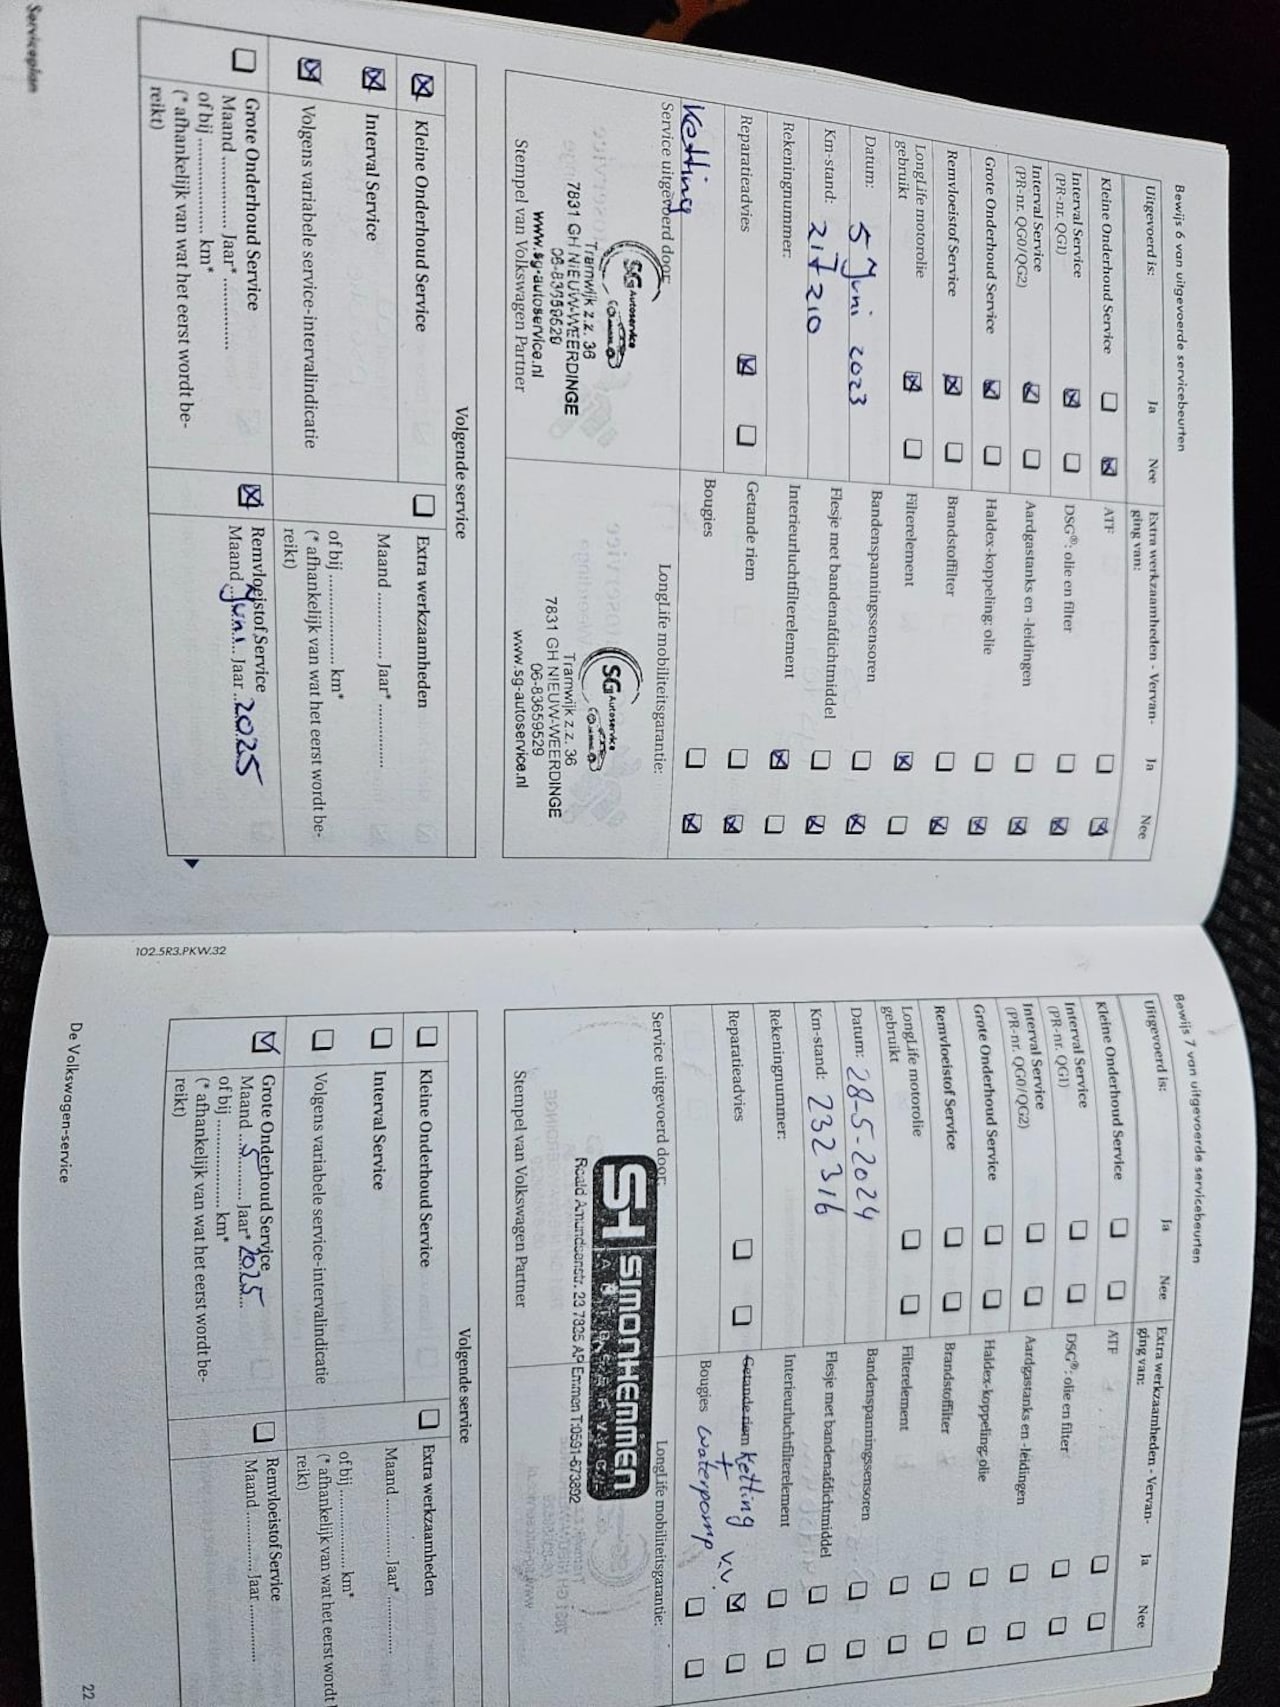 Bewijs 6 van uitgevoerde servicebeurten
Uitgevoerd is: Ja Nee
Kleine Onderhoud Service
Interval Service
(PR-nr. QG1)
Interval Service
(PR-nr. QG0/QG2)
Grote Onderhoud Service
Remvloeistof Service
LongLife motorolie
gebruikt
Datum: 5 Juni 2023
Km-stand: 217210
Rekeningnummer:
Reparatieadvies
Ketting
Extra werkzaamheden - Vervan-
ging van: Ja Nee
ATF
DSG®: olie en filter
Aardgastanks en -leidingen
Haldex-koppeling: olie
Brandstoffilter
Filterelement
Bandenspanningssensoren
Flesje met bandenafdichtmiddel
Interieurluchtfilterelement
Getande riem
Bougies
Service uitgevoerd door:
SG Autoservice
Tramwijk z.z. 36
7831 GH NIEUW-WEERDINGE
06-83659529
www.sg-autoservice.nl
Stempel van Volkswagen Partner
LongLife mobiliteitsgarantie:
SG Autoservice
Tramwijk z.z. 36
7831 GH NIEUW-WEERDINGE
06-83659529
www.sg-autoservice.nl
Volgende service
Kleine Onderhoud Service
Interval Service
Volgens variabele service-intervalindicatie
Grote Onderhoud Service
Maand ............... Jaar* ...............
of bij ............... km*
(* afhankelijk van wat het eerst wordt be-
reikt)
Extra werkzaamheden
Maand ............... Jaar* ...............
of bij ............... km*
(* afhankelijk van wat het eerst wordt be-
reikt)
Remvloeistof Service
Maand Juni Jaar 2025
Serviceplan
102.5R3.PKW.32
Bewijs 7 van uitgevoerde servicebeurten
Uitgevoerd is: Ja Nee
Kleine Onderhoud Service
Interval Service
(PR-nr. QG1)
Interval Service
(PR-nr. QG0/QG2)
Grote Onderhoud Service
Remvloeistof Service
LongLife motorolie
gebruikt
Datum: 28-5-2024
Km-stand: 232316
Rekeningnummer:
Reparatieadvies
Extra werkzaamheden - Vervan-
ging van: Ja Nee
ATF
DSG®: olie en filter
Aardgastanks en -leidingen
Haldex-koppeling: olie
Brandstoffilter
Filterelement
Bandenspanningssensoren
Flesje met bandenafdichtmiddel
Interieurluchtfilterelement
Getande riem Ketting v.v.
+
Bougies waterpomp
Service uitgevoerd door:
LongLife mobiliteitsgarantie:
SH SIMONHEMMEN
Roald Amundsenstr. 23 7825 AP Emmen T:0591-673892
Stempel van Volkswagen Partner
Volgende service
Kleine Onderhoud Service
Interval Service
Volgens variabele service-intervalindicatie
Grote Onderhoud Service
Maand 5 Jaar* 2025
of bij ............... km*
(* afhankelijk van wat het eerst wordt be-
reikt)
Extra werkzaamheden
Maand ............... Jaar* ...............
of bij ............... km*
(* afhankelijk van wat het eerst wordt
reikt)
Remvloeistof Service
Maand ............... Jaar ...............
De Volkswagen-service
22